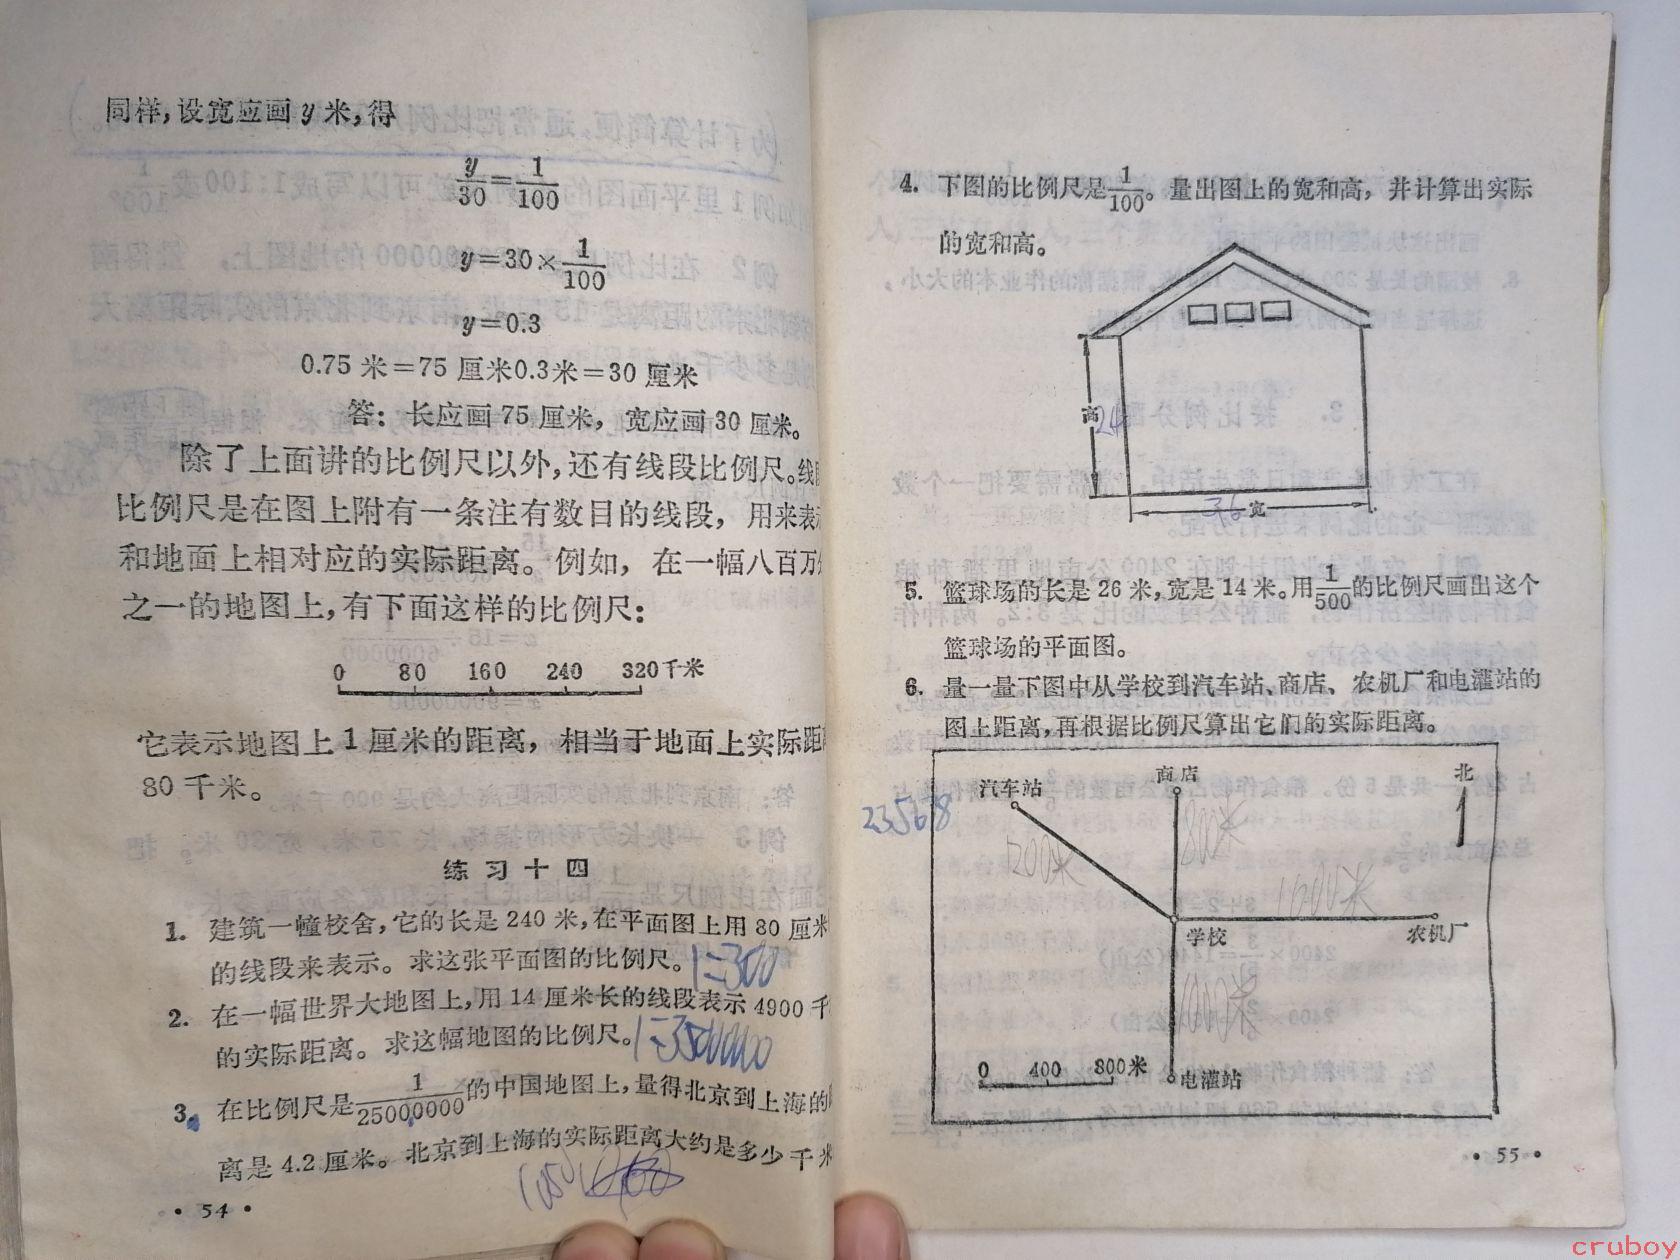 同样,设宽应画 y 米,得
y/30=1/100
y=30×1/100
y=0.3
0.75 米=75 厘米0.3米=30 厘米
答：长应画75厘米，宽应画30厘米。
除了上面讲的比例尺以外,还有线段比例尺。线
比例尺是在图上附有一条注有数目的线段，用来表
和地面上相对应的实际距离。例如，在一幅八百万
之一的地图上,有下面这样的比例尺：
0 80 160 240 320千米
它表示地图上1厘米的距离，相当于地面上实际距
80千米。
练习十四
1. 建筑一幢校舍,它的长是240米,在平面图上用80厘米
的线段来表示。求这张平面图的比例尺。1:300
2. 在一幅世界大地图上,用14厘米长的线段表示4900千
的实际距离。求这幅地图的比例尺。1:35000000
3. 在比例尺是1/25000000的中国地图上,量得北京到上海的
离是4.2厘米。北京到上海的实际距离大约是多少千米
1050
• 54 •
4. 下图的比例尺是1/100。量出图上的宽和高，并计算出实际
的宽和高。
高
24
36
宽
5. 篮球场的长是26米,宽是14米。用1/500的比例尺画出这个
篮球场的平面图。
6. 量一量下图中从学校到汽车站、商店、农机厂和电灌站的
图上距离,再根据比例尺算出它们的实际距离。
汽车站
商店
北
235678
1200米
800米
1600米
学校
农机厂
1000米
0 400 800米
电灌站
• 55 •
cruboy